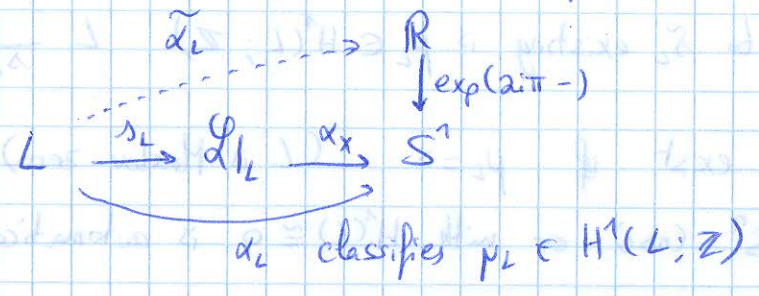 α̃_L ℝ
exp(2iπ -)
L s_L ℒ|_L α_X S^1
α_L classifies μ_L ∈ H^1(L; ℤ)